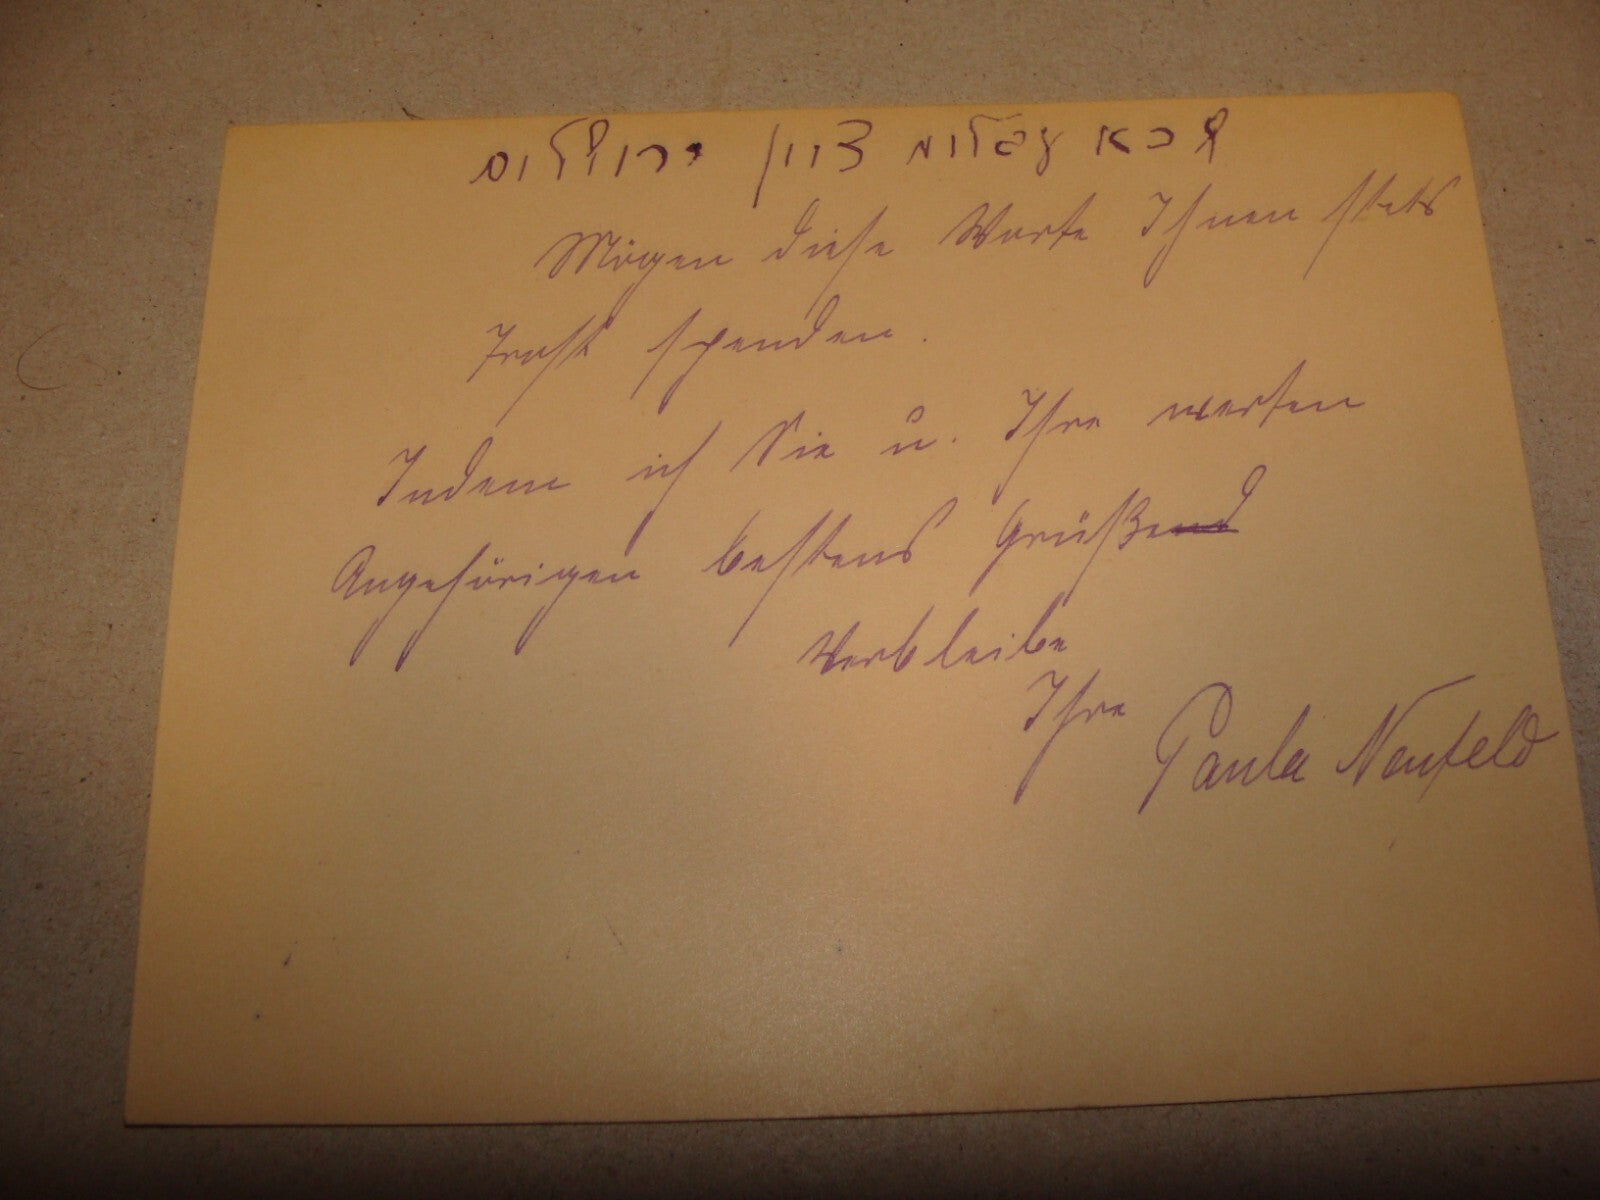 ציון ירושלים
Mögen diese Worte Ihnen stets
Trost spenden.
Indem ich Sie u. Ihre werten
Angehörigen bestens Grüßend
Verbleibe
Ihre
Paula Neufeld